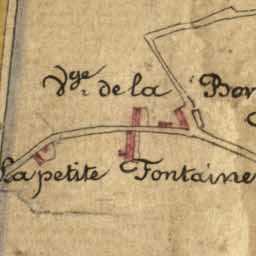 Vge. de la Bor
La petite Fontaine